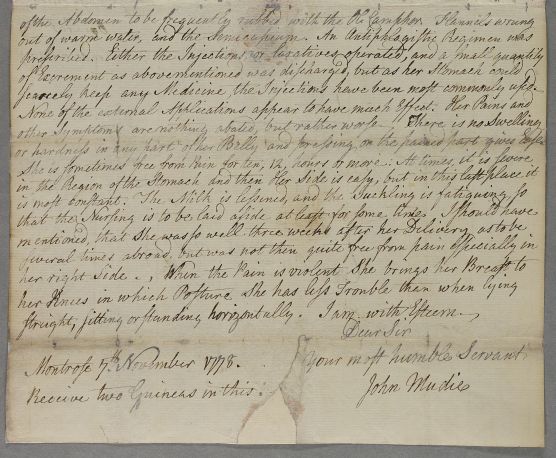 of the Abdomen to be frequently rubbed with the Ol: Camphor. Flannels wrung
out of warm water, and the Semicupium. An Antiphlogistic Regimen was
prescrised. Either the Injections or laxatives operated, and a small quantity
of Excrement as abovementioned was discharged, but as her Stomach could
scarcely keep any Medecine, the Injections have been most commonly used.
None of the external Applications appear to have much Effect. Her Pains and
other Symptoms are nothing abated, but rather worse. There is no Swelling
or hardness in any part of her Belly and pressing on the pained part gives Ease.
She is sometimes free from Pain for ten, 12, hours or more. At times, it is severe
in the Region of the Stomach and then Her Side is easy, but in this last place it
is most constant. The Milk is lessened, and the Suckling is fatiguing, so
that the Nursing is to be laid aside at least for some time, I should have
mentioned, that She was so well three weeks after her Delivery, as to be
several times abroad, but was not then quite free from pain especially in
her right Side., When the Pain is violent She brings her Breast to
her Knees in which Posture She has less Trouble than when lying
straight, sitting or standing horizontally. I am with Esteem
Dear Sir
Your most humble Servant
John Mudie
Montrose 7th November 1778.
Receive two Guineas in this.